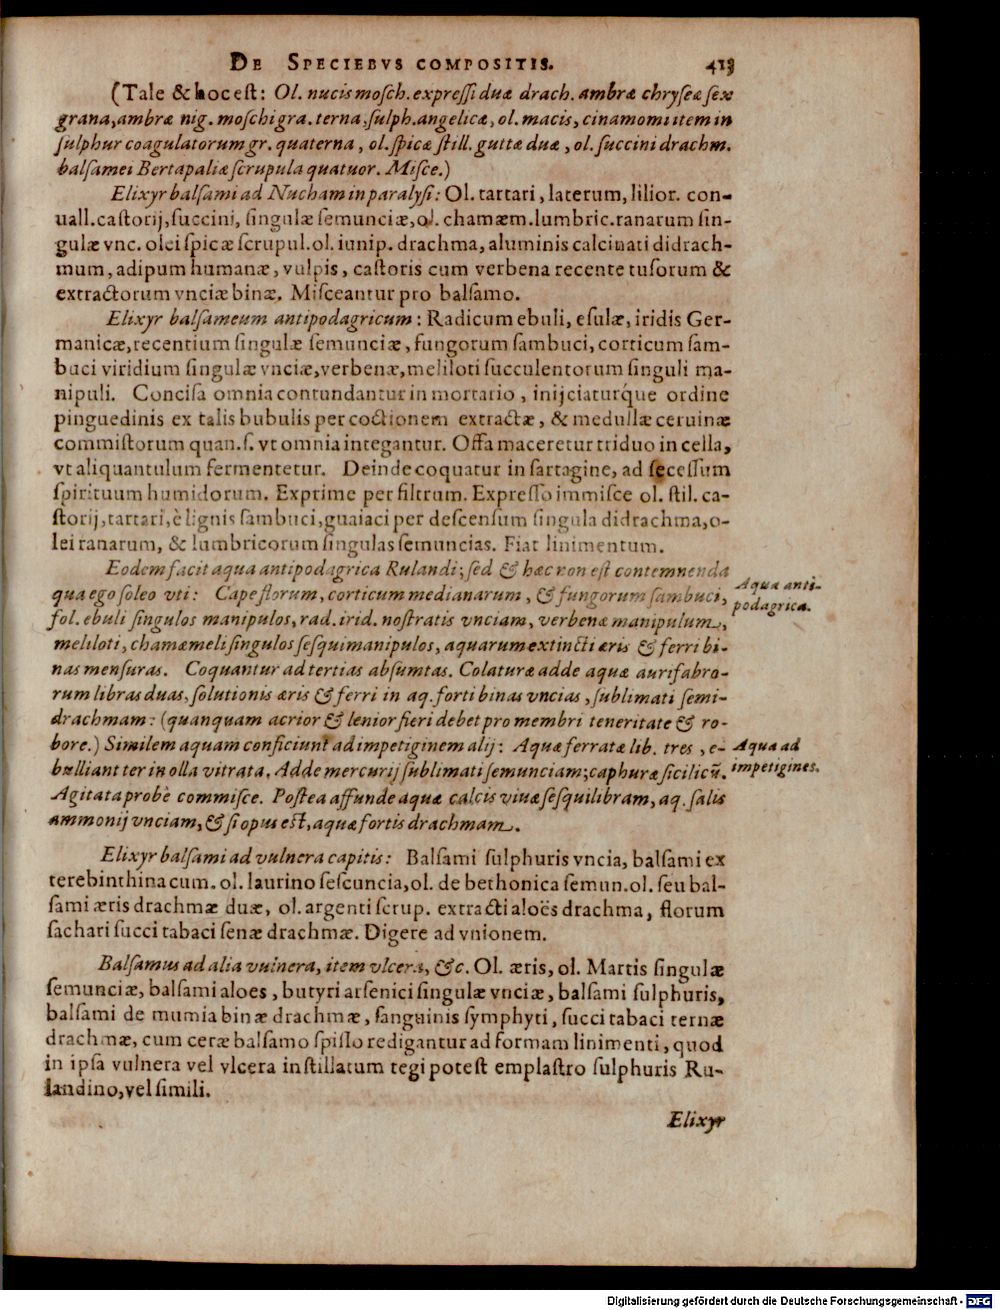 DE SPECIEBVS COMPOSITIS. 413
(Tale & hoc est: Ol. nucis mosch. expressi duæ drach. ambræ chryseæ sex
grana, ambræ nig. moschi gra. terna, sulph. angelicæ, ol. macis, cinamomi item in
sulphur coagulatorum gr. quaterna, ol. spicæ still. guttæ duæ, ol. succini drachm.
balsamei Bertapaliæ scrupula quatuor. Misce.)
Elixyr balsami ad Nucham in paralysi: Ol. tartari, laterum, lilior. con-
uall. castorij, succini, singulæ semunciæ, ol. chamæm. lumbric. ranarum sin-
gulæ vnc. olei spicæ scrupul. ol. iunip. drachma, aluminis calcinati didrach-
mum, adipum humanæ, vulpis, castoris cum verbena recente tusorum &
extractorum vnciæ binæ. Misceantur pro balsamo.
Elixyr balsameum antipodagricum: Radicum ebuli, esulæ, iridis Ger-
manicæ, recentium singulæ semunciæ, fungorum sambuci, corticum sam-
buci viridium singulæ vnciæ, verbenæ, meliloti succulentorum singuli ma-
nipuli. Concisa omnia contundantur in mortario, inijciaturq́ue ordine
pinguedinis ex talis bubulis per coctionem extractæ, & medullæ ceruinæ
commistorum quan. s. vt omnia integantur. Offa maceretur triduo in cella,
vt aliquantulum fermentetur. Deinde coquatur in sartagine, ad secessum
spirituum humidorum. Exprime per filtrum. Expresso immisce ol. stil. ca-
storij, tartari, è lignis sambuci, guaiaci per descensum singula didrachma, o-
lei ranarum, & lumbricorum singulas semuncias. Fiat linimentum.
Eodem facit aqua antipodagrica Rulandi; sed & hæc non est contemnenda
qua ego soleo vti: Cape florum, corticum medianarum, & fungorum sambuci,
fol. ebuli singulos manipulos, rad. irid. nostratis vnciam, verbenæ manipulum,
meliloti, chamæmeli singulos sesquimanipulos, aquarum extincti æris & ferri bi-
nas mensuras. Coquantur ad tertias absumtas. Colaturæ adde aquæ aurifabro-
rum libras duas, solutionis æris & ferri in aq. forti binas vncias, sublimati semi-
drachmam: (quanquam acrior & lenior fieri debet pro membri teneritate & ro-
bore.) Similem aquam conficiunt ad impetiginem alij: Aquæ ferratæ lib. tres, e-
bulliant ter in olla vitrata. Adde mercurij sublimati semunciam; caphuræ sicilicū.
Agitata probè commisce. Postea affunde aquæ calcis viuæ sesquilibram, aq. salis
ammonij vnciam, & si opus est, aquæ fortis drachmam.
Aqua anti-
podagrica.
Aqua ad
impetigines.
Elixyr balsami ad vulnera capitis: Balsami sulphuris vncia, balsami ex
terebinthina cum. ol. laurino sescuncia, ol. de bethonica semun. ol. seu bal-
sami æris drachmæ duæ, ol. argenti scrup. extracti aloës drachma, florum
sachari succi tabaci senæ drachmæ. Digere ad vnionem.
Balsamus ad alia vulnera, item vlcera, &c. Ol. æris, ol. Martis singulæ
semunciæ, balsami aloes, butyri arsenici singulæ vnciæ, balsami sulphuris,
balsami de mumia binæ drachmæ, sanguinis symphyti, succi tabaci ternæ
drachmæ, cum ceræ balsamo spisso redigantur ad formam linimenti, quod
in ipsa vulnera vel vlcera instillatum tegi potest emplastro sulphuris Ru-
landino, vel simili.
Elixyr
Digitalisierung gefördert durch die Deutsche Forschungsgemeinschaft - DFG